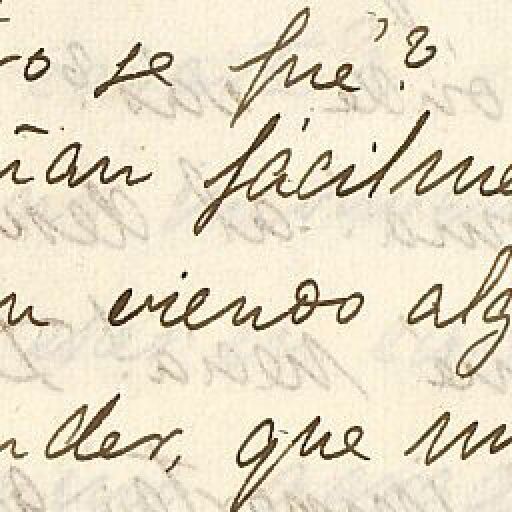 ro se fué?
ñan fácilme
n viendo alg
nder, que m